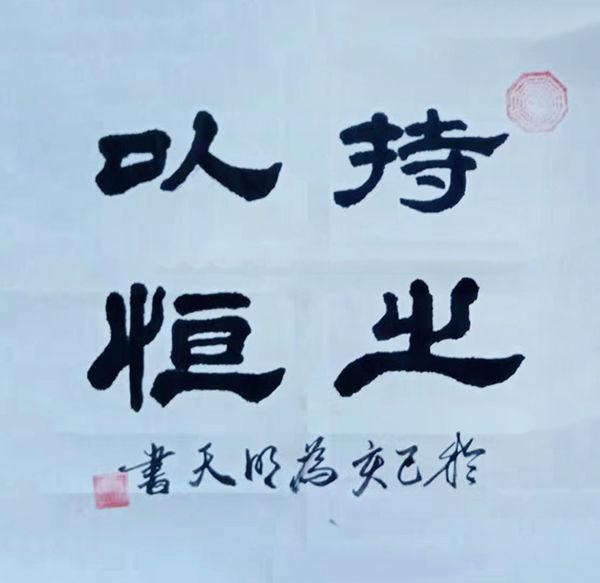 持之
以恒
於己亥為明天書